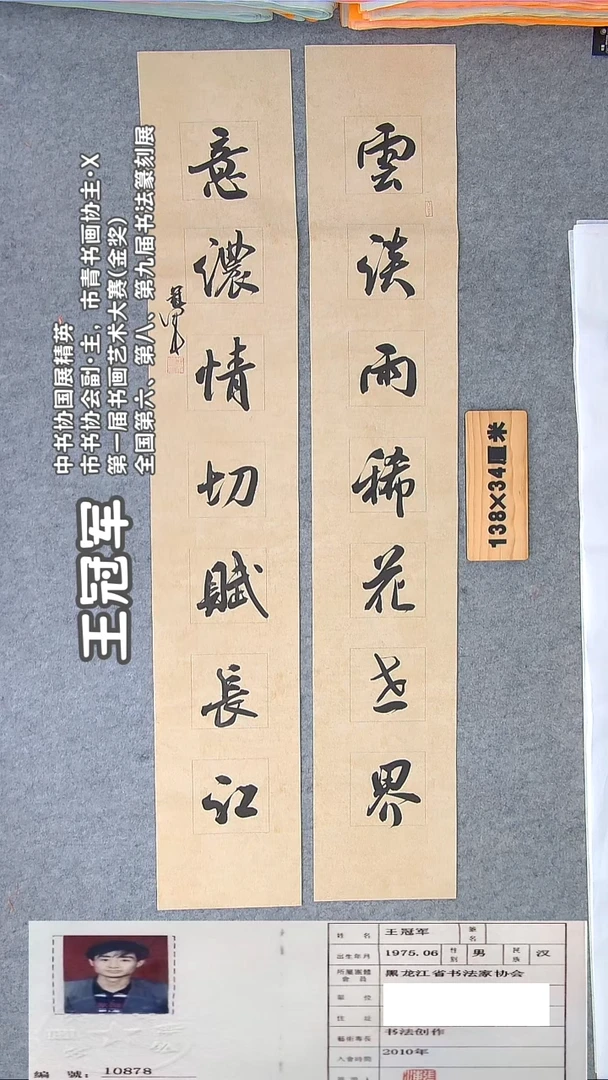 雲淡雨稀花世界
意濃情切賦長江
冠軍
138×34厘米
中书协国展精英
市书协会副·主，市青书画协主·X
第一届书画艺术大赛(金奖)
全国第六、第八、第九届书法篆刻展
王冠军
姓 名 王冠军 筆名
出生年月 1975.06 性别 男 民族 汉
所屬團體會員 黑龙江省书法家协会
職 位
住 址
藝術專長 书法创作
入會時間 2010年
編 號: 10878